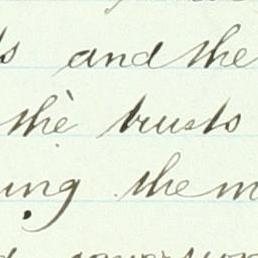 s and the
the trusts
ing them